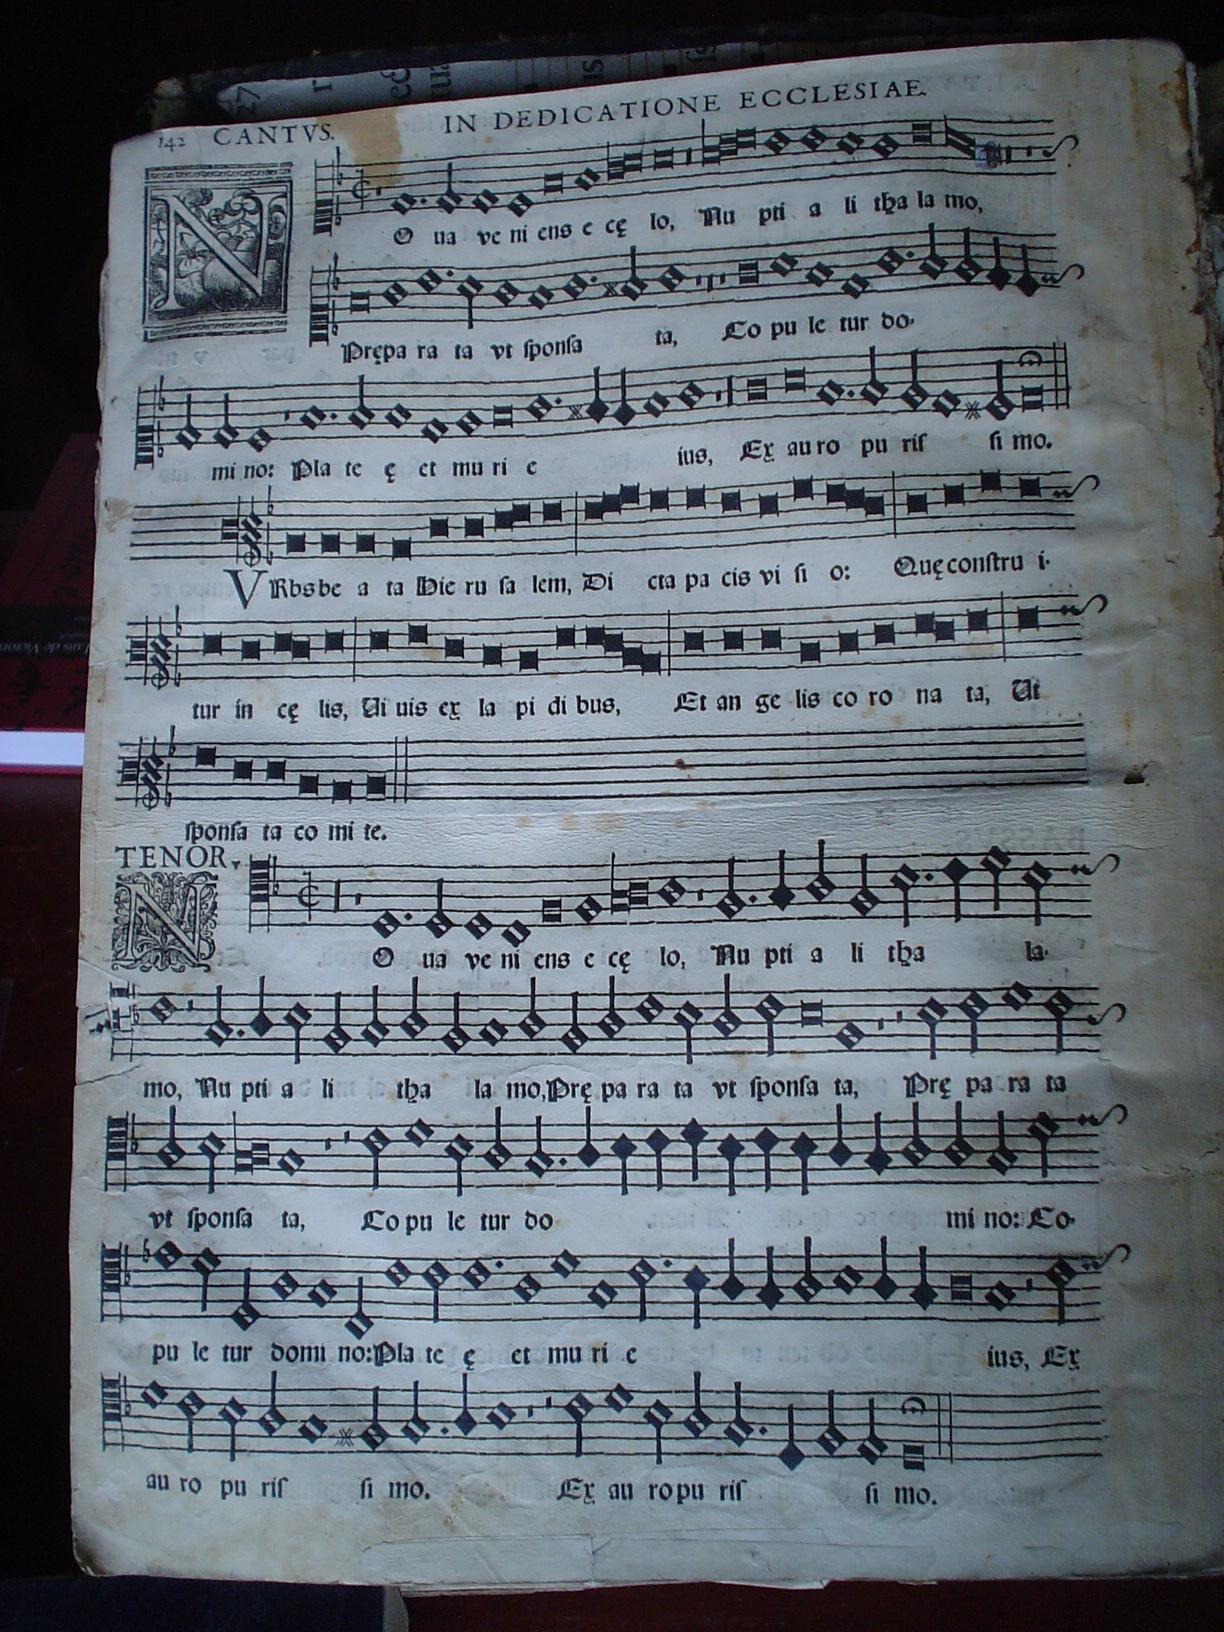 142 CANTVS. IN DEDICATIONE ECCLESIAE.
NO ua ve ni ens e cę lo, Nu pti a li tha la mo,
Prępa ra ta vt sponsa ta, Co pu le tur do.
mi no: Pla te ę et mu ri e ius, Ex auro pu ris si mo.
VRbsbe a ta Hie ru sa lem, Di cta pa cis vi si o: Quęconstru i.
tur in cę lis, Ui uis ex la pi di bus, Et an ge lis co ro na ta, Ut
sponsa ta co mi te.
TENOR.
NO ua ve ni ens e cę lo, Nu pti a li tha la.
mo, Nu pti a li tha la mo,Prę pa ra ta vt sponsa ta, Prę pa ra ta
vt sponsa ta, Copu le tur do mi no: Co.
pu le tur domi no:Pla te ę et mu ri e ius, Ex
au ro pu ris si mo. Ex au ropu ris si mo.